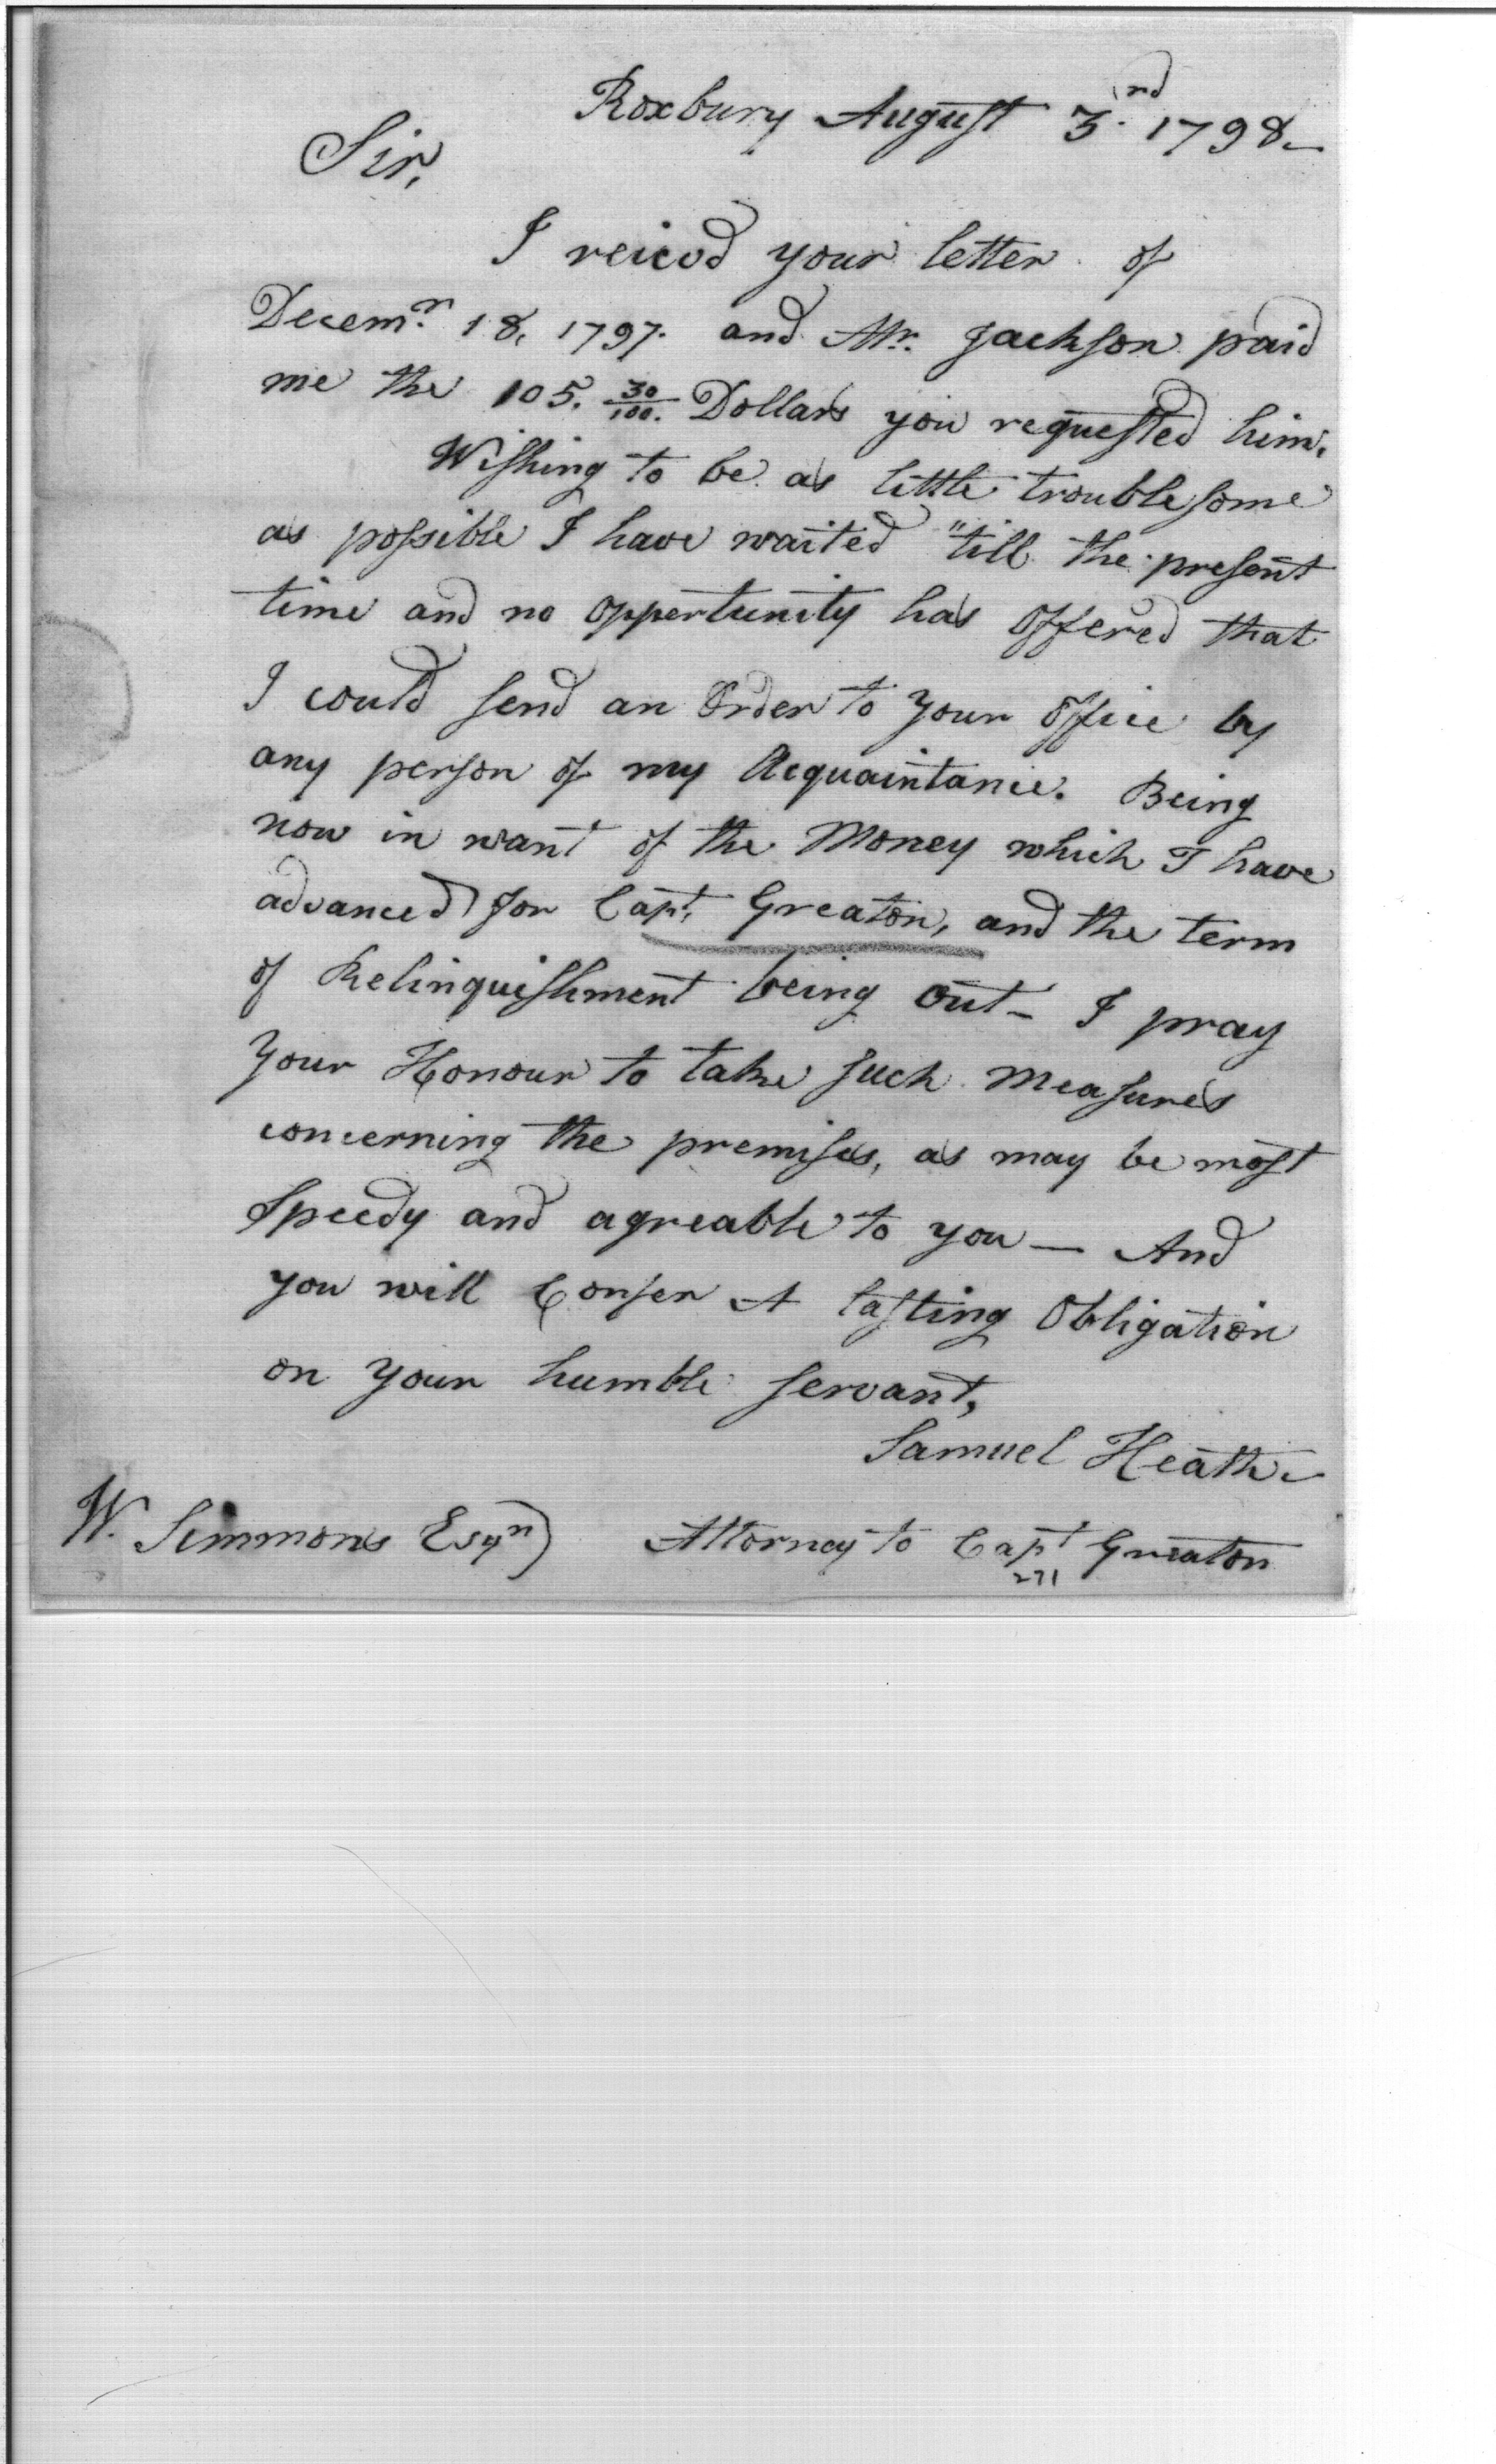 Roxbury August 3.nd 1798_
Sir,
I reicvd your letter of
Decemr. 18, 1797. and Mr. Jackson paid
me the 105. 30/100. Dollars you requested him.
Wishing to be as little troublesome
as possible I have waited "till the present
time and no oppertunity has offered that
I could send an Order to your office by
any person of my Acquaintance. Being
now in want of the Money which I have
advanced for Capt. Greaton, and the term
of Relinquishment being out_ I pray
Your Honour to take such Measures
concerning the premises, as may be most
Speedy and agreable to you — And
you will Confer A lasting Obligation
on your humble servant,
Samuel Heath_
W. Simmons Esqr) Attorney to Capt Greaton
271